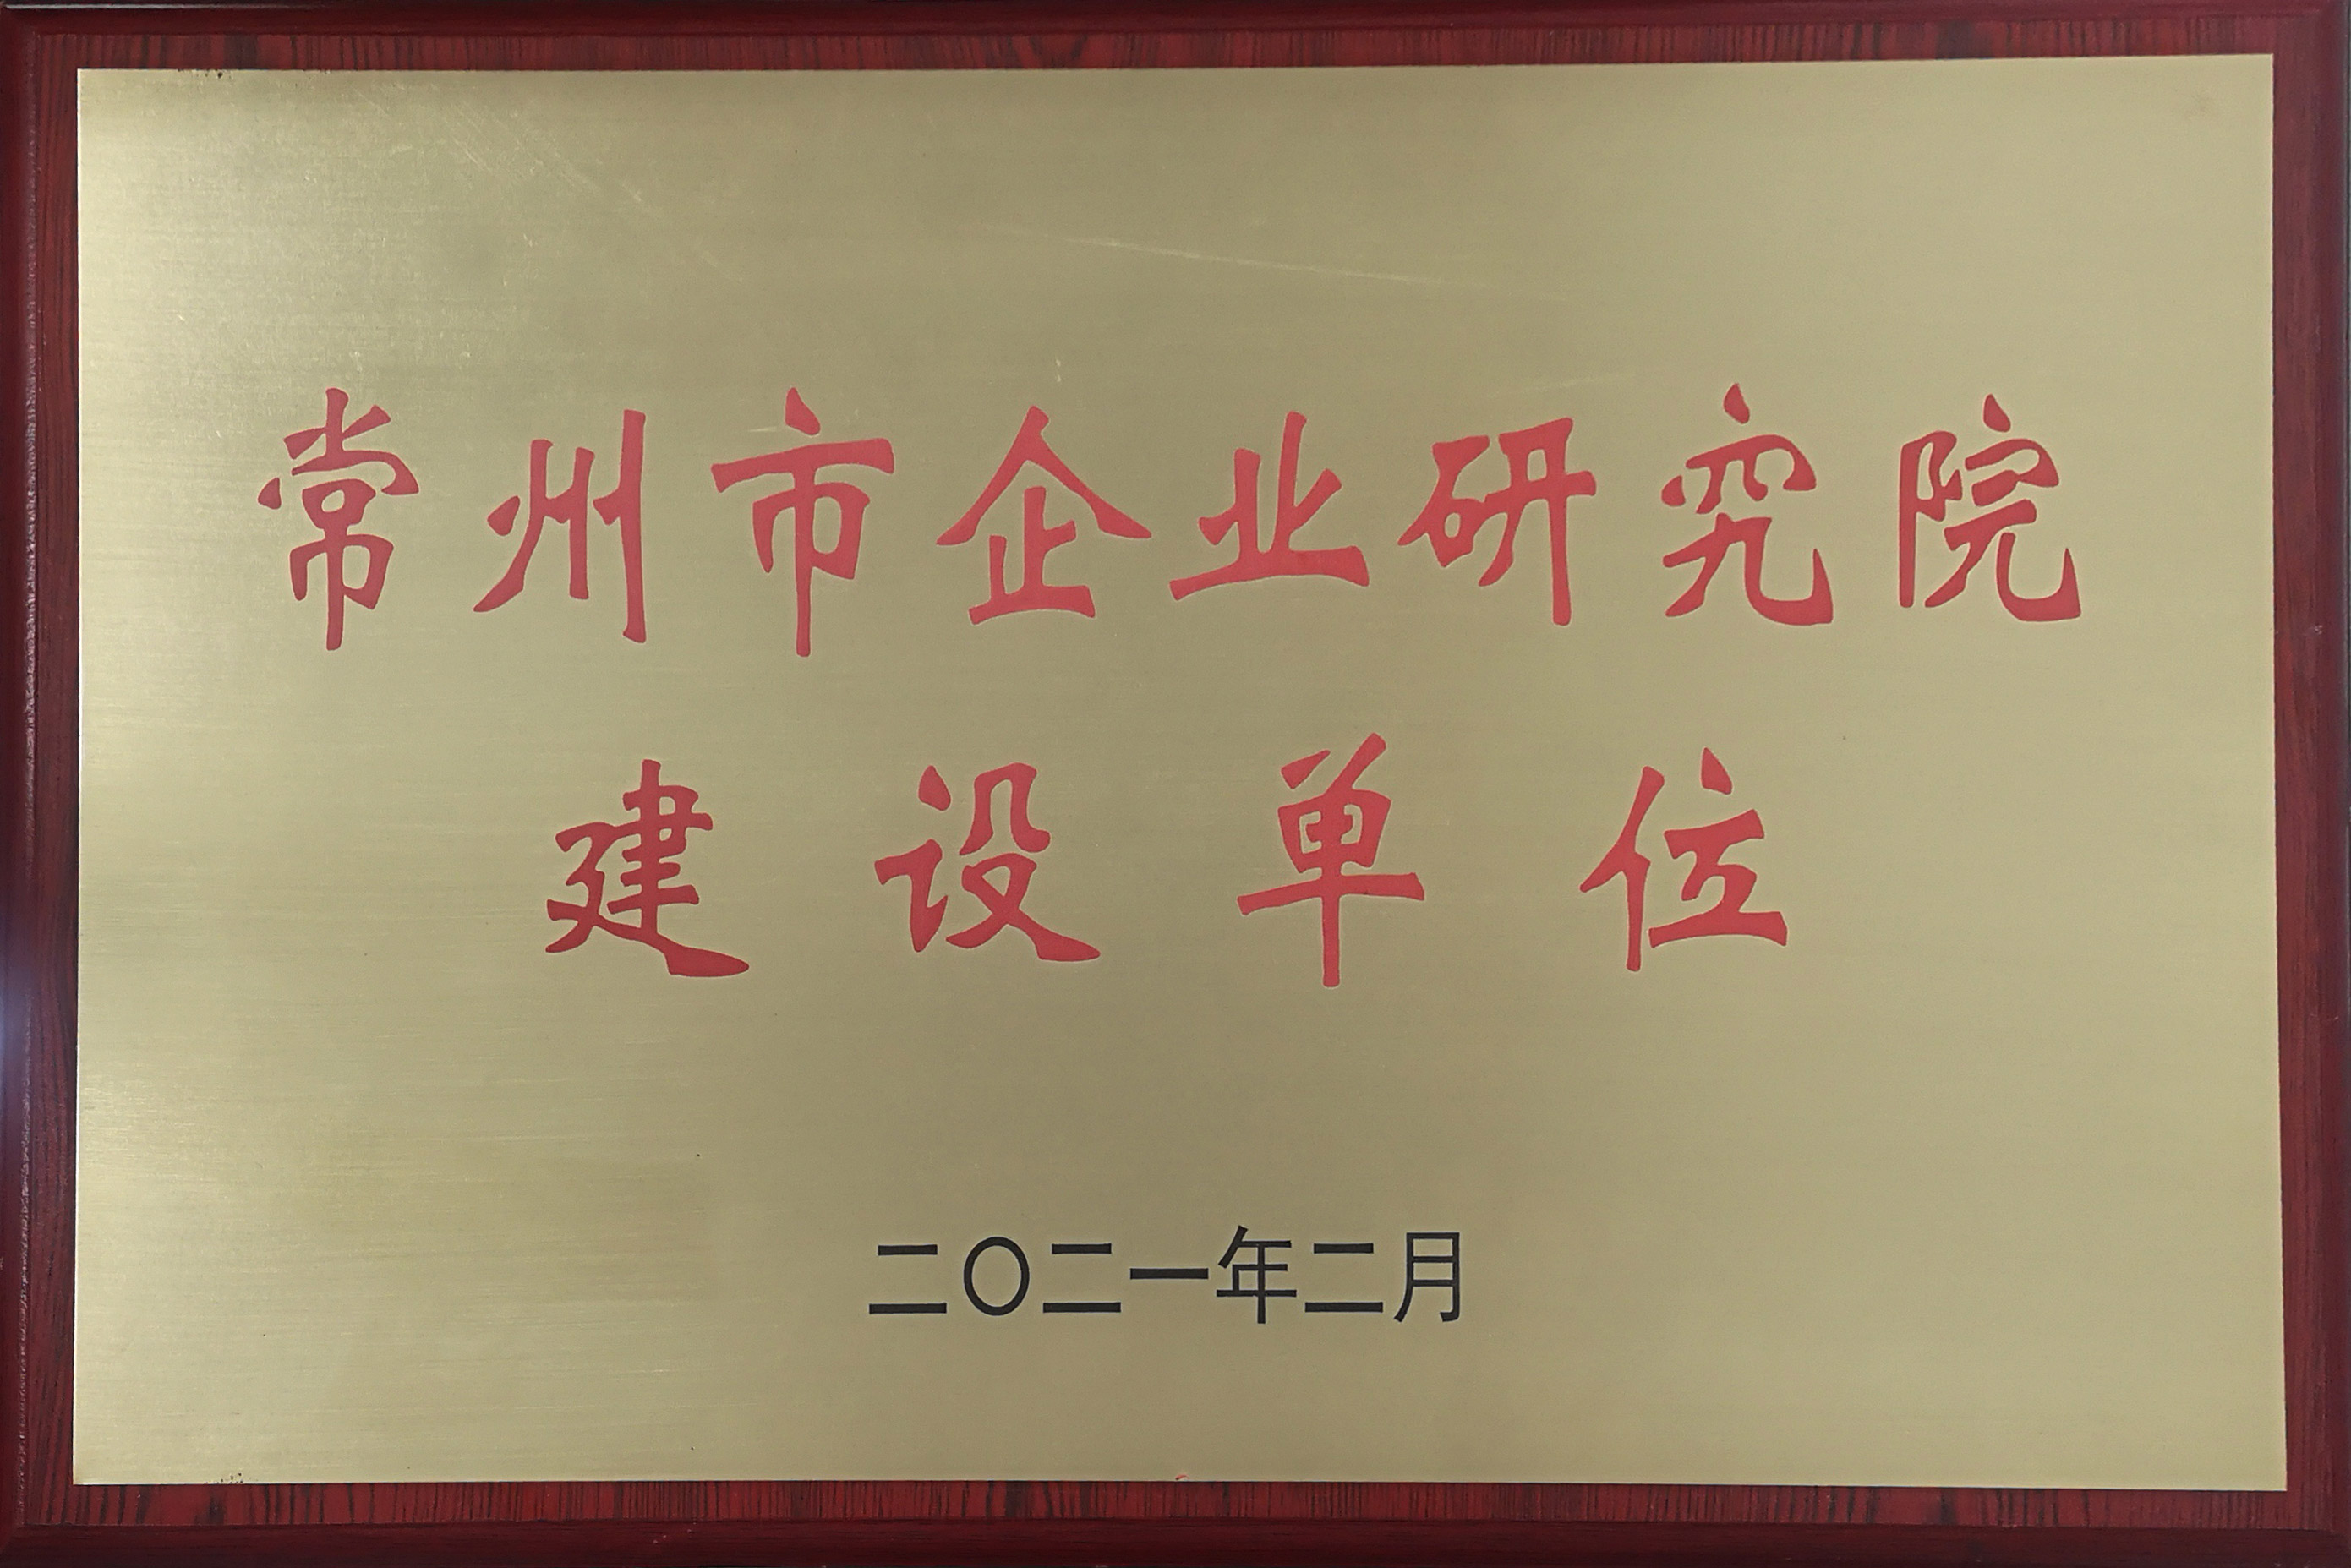 常州市企业研究院
建设单位
二〇二一年二月